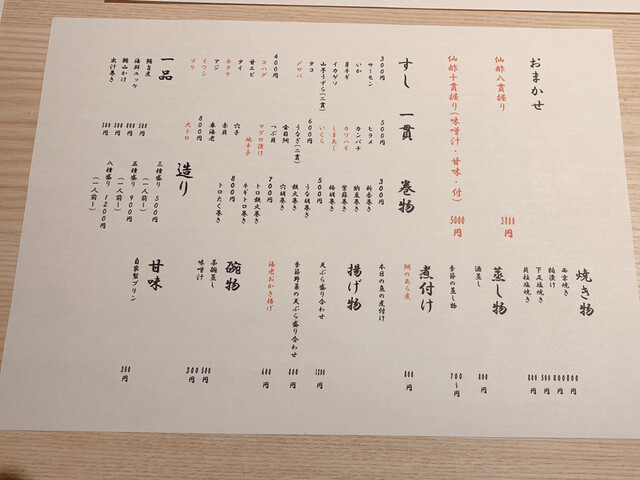 おまかせ
仙酢八貫握り 3000円
仙酢十貫握り(味噌汁・甘味・付) 5000円
すし 一貫
300円
サーモン
いか
耳ギリ
イカゲソ
山芋うずら(二貫)
タコ
〆サバ
400円
コハダ
甘エビ
タイ
ホタテ
アジ
イワシ
ブリ
500円
ヒラメ
カンパチ
カワハギ
しまあじ
いくら
600円
うなぎ(二貫)
金目鯛
つぶ貝
マグロ漬け
穴子
赤貝
車海老
800円
大トロ
巻物
300円
新香巻き
納豆巻き
紫蘇巻き
梅胡巻き
500円
うな胡巻き
鉄火巻き
穴胡巻き
700円
トロ鉄火巻き
ネギトロ巻き
800円
トロたく巻き
一品
鯛旨煮 500円
海鮮ユッケ 800円
鯛山かけ 500円
出汁巻き 500円
造り
三種盛り(一人前~) 500円
五種盛り(一人前~) 900円
八種盛り(一人前~) 1200円
焼き物
西京焼き 800円
粕漬け 800円
下足塩焼き 500円
貝柱塩焼き 800円
蒸し物
酒蒸し 800円
季節の蒸し物 700~円
煮付け
本日の魚の煮付け
鯛のあら煮 800円
揚げ物
天ぷら盛り合わせ 1200円
季節野菜の天ぷら盛り合わせ 800円
海老おかき揚げ 600円
碗物
茶碗蒸し 500円
味噌汁 300円
甘味
自家製プリン 300円